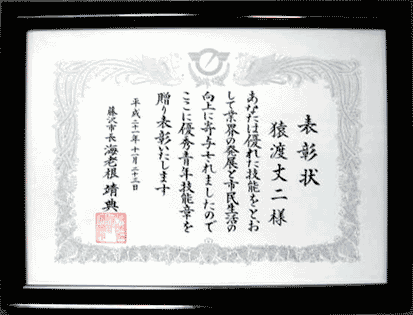 表彰状
猿渡丈二様
あなたは優れた技能をとお
して業界の発展と市民生活の
向上に寄与されましたので
ここに優秀青年技能章を
贈り表彰いたします
平成二十一年十一月二十三日
藤沢市長 海老根靖典